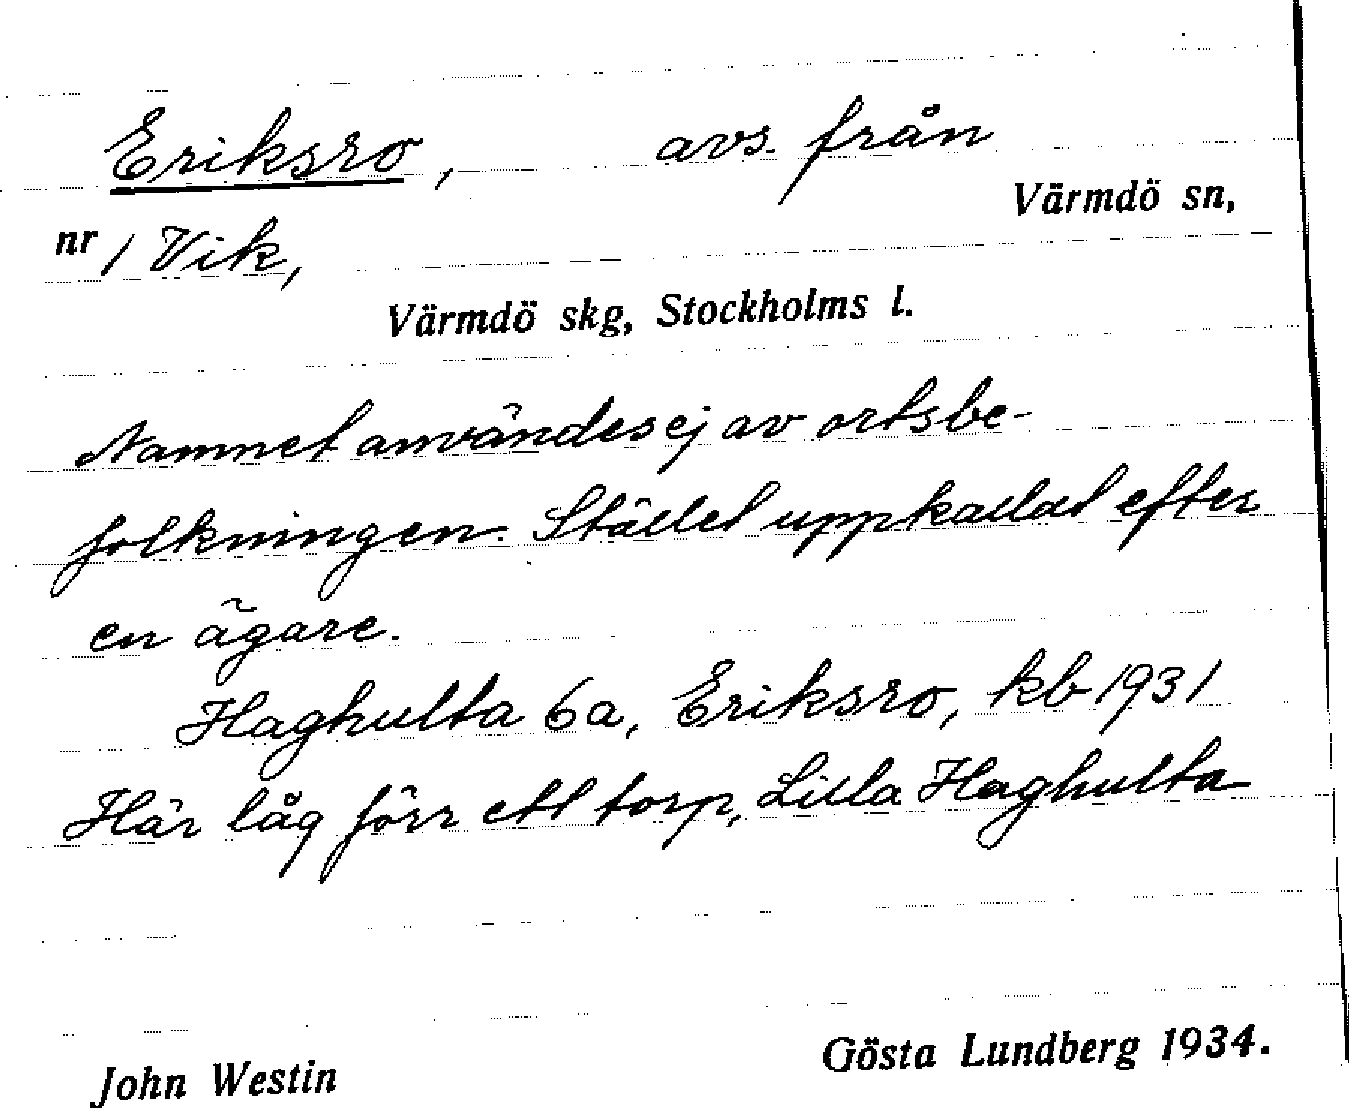 Eriksro, avs. från
Värmdö sn,
nr 1 Vik,
Värmdö skg, Stockholms l.
Namnet användes ej av ortsbe-
folkningen. Stället uppkallat efter
en ägare.
Haghulta 6a, Eriksro, kb 1931
Här låg förr ett torp, Lilla Haghulta
John Westin Gösta Lundberg 1934.